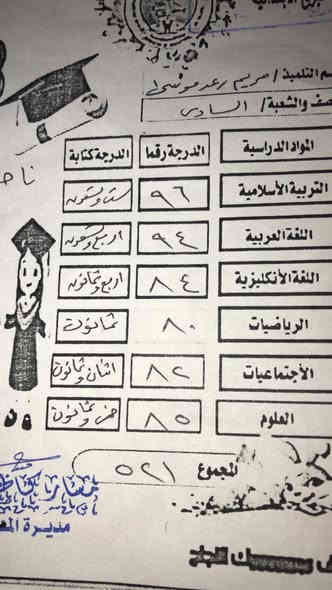 اسم التلميذ / مريم رعد موسى
الصف والشعبة / السادس
المواد الدراسية الدرجة رقما الدرجة كتابة
التربية الأسلامية ٩٦ ست وتسعون
اللغة العربية ٩٤ اربع وتسعون
اللغة الأنكليزية ٨٤ اربع وثمانون
الرياضيات ٨٠ ثمانون
الأجتماعيات ٨٢ اثنان وثمانون
العلوم ٨٥ خمس وثمانون
المجموع ٥٢١
مديرة